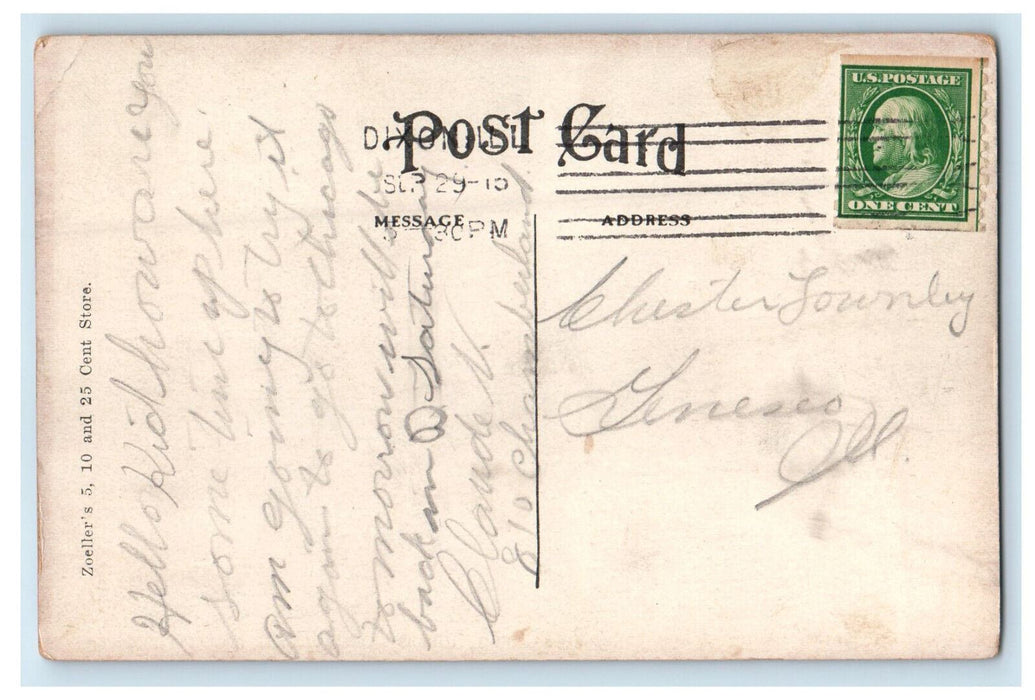 Post Card
DIXON, ILL.
SEP 29-10
30 PM
U.S. POSTAGE
ONE CENT
MESSAGE
ADDRESS
Zoeller's 5, 10 and 25 Cent Store.
Hello Kid how are you
some time up here.
am going to try it
again to go to Chicago
tomorrow will be
back on Saturday
Claude V.
810 Chamberland
Chester Townley
Geneseo
Ill.